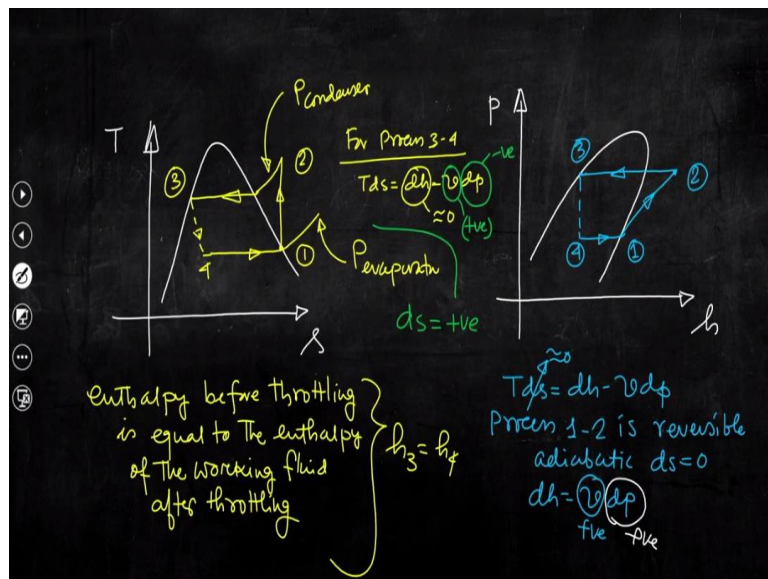 T
③
②
①
4
s
Pcondenser
Pevaporator
For Process 3-4
Tds = dh - v dp
-ve
≈0
(+ve)
ds = +ve
P
③
②
④
①
h
enthalpy before throttling
is equal to The enthalpy
of The working fluid
after throttling
h₃ = h₄
≈0
Tds = dh - v dp
Process 1-2 is reversible
adiabatic ds=0
dh = v dp
+ve
+ve